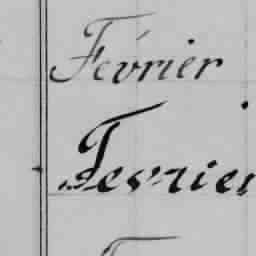 Février
Fevrier